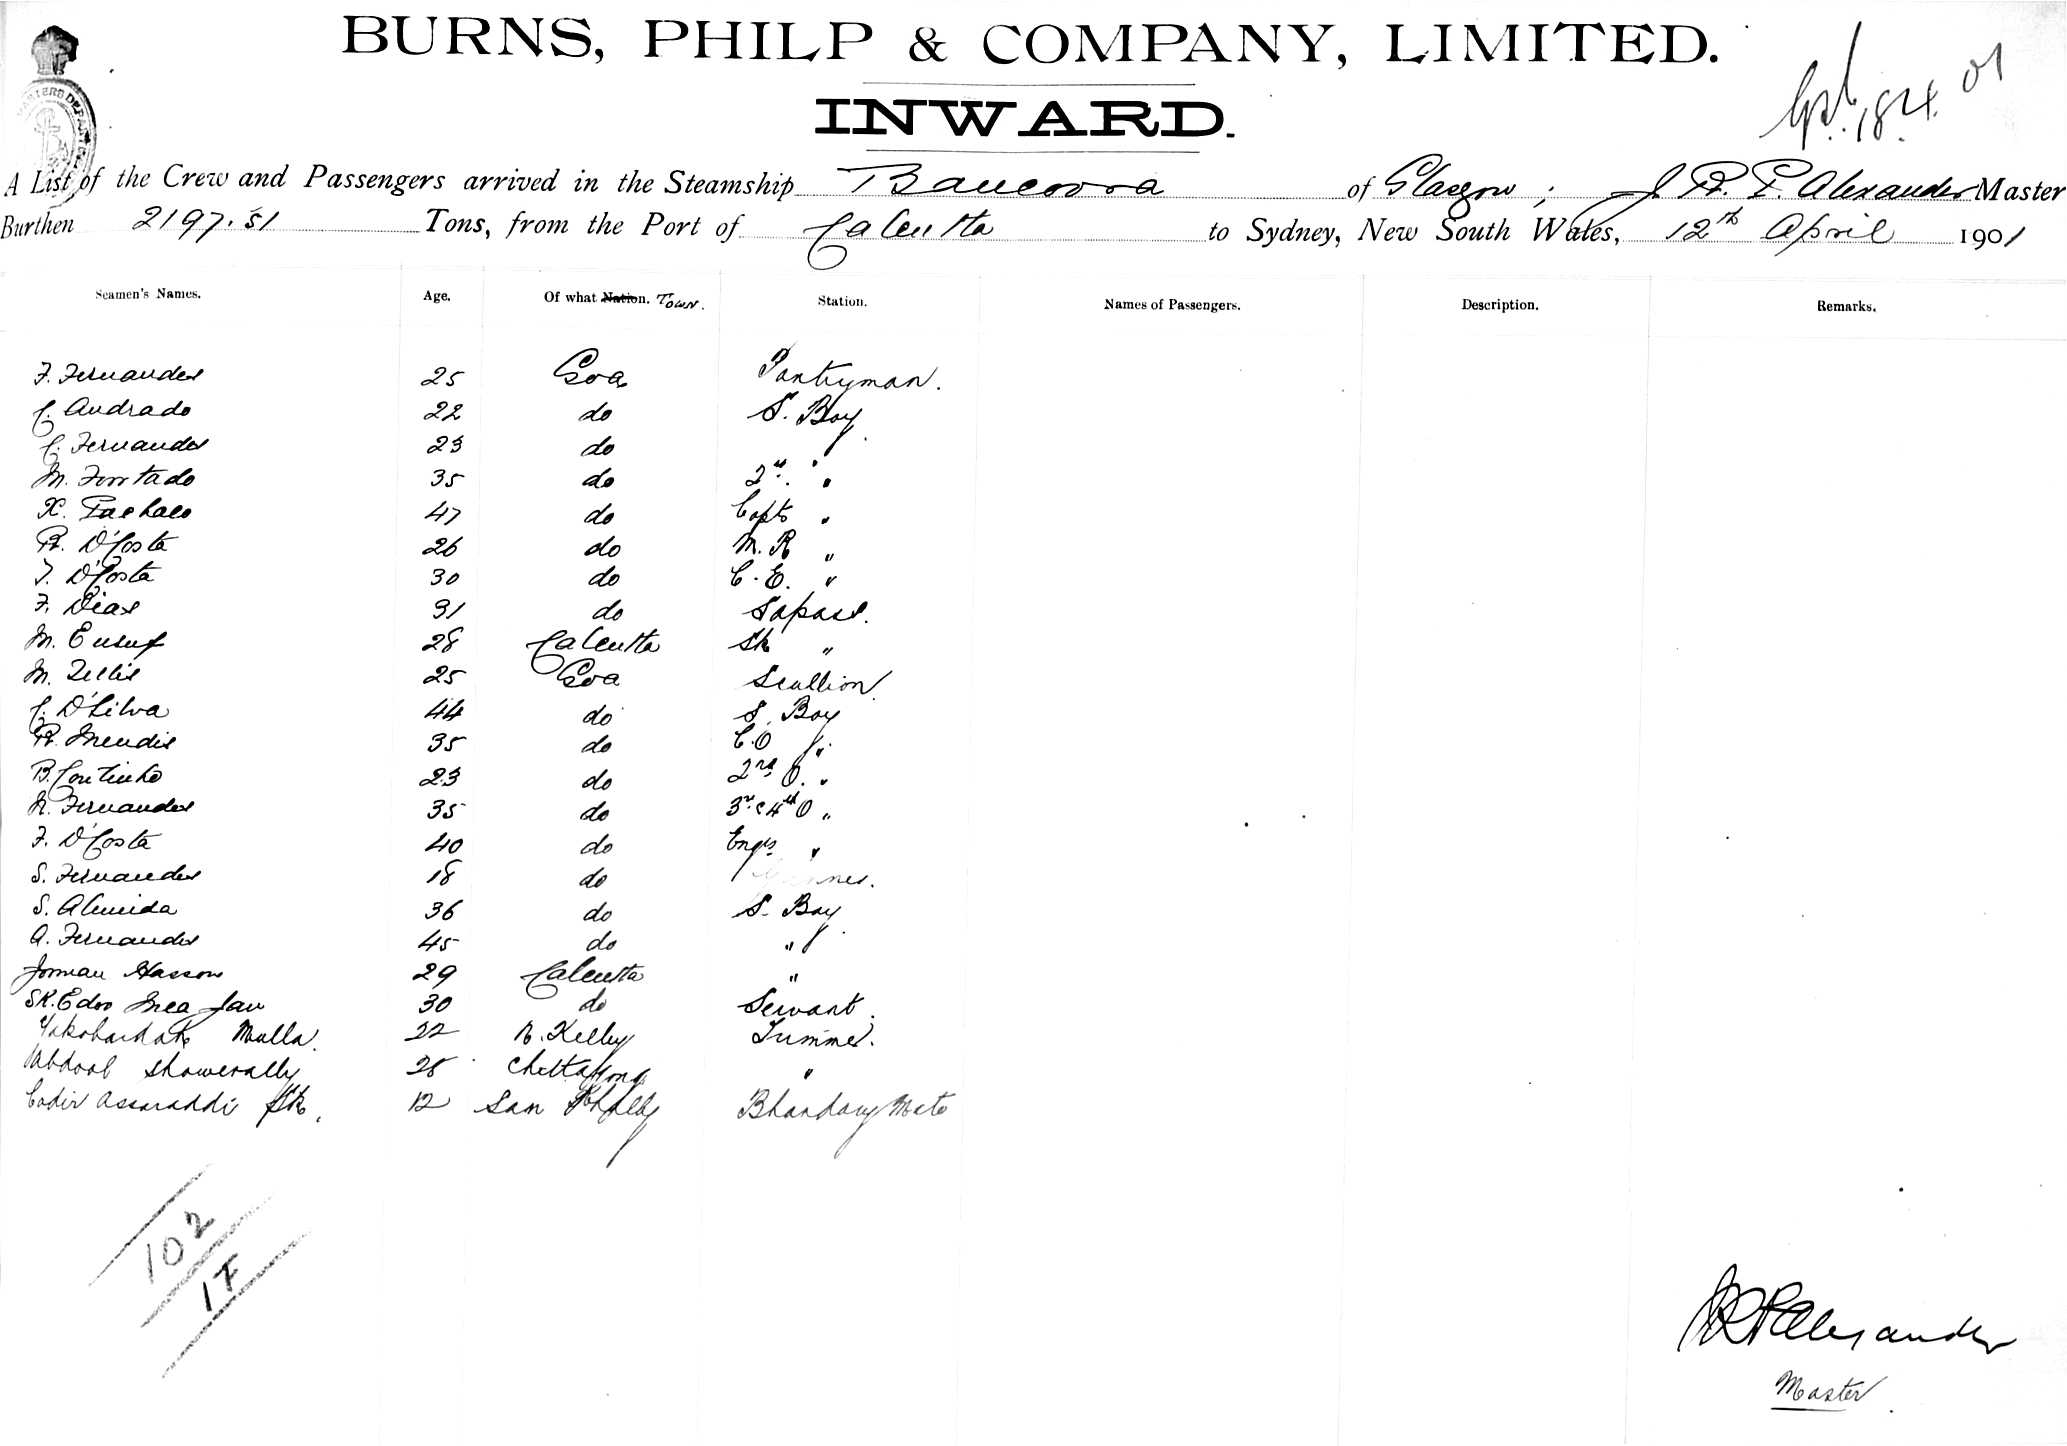 BURNS, PHILP & COMPANY, LIMITED.
INWARD.
18.4.01
A List of the Crew and Passengers arrived in the Steamship Bancoora of Glasgow; J. R. F. Alexander Master
Burthen 2197.51 Tons, from the Port of Calcutta to Sydney, New South Wales, 12th April 1901
Seamen's Names. Age. Of what Nation. Town. Station. Names of Passengers. Description. Remarks.
F. Fernandes 25 Goa Pantryman.
C. Andrado 22 do S. Boy
C. Fernandes 23 do
M. Furtado 35 do 2nd. "
X. Pachaco 47 do Capts "
R. D'Costa 26 do M. R "
J. D'Costa 30 do C. E. "
F. Dias 31 do Topass.
M. Eusuf 28 Calcutta Sk "
M. Tellis 25 Goa Scullion.
C. D'Silva 44 do S. Boy
R. Mendis 35 do C.O "
B. Coutinho 23 do 2nd O. "
N. Fernandes 35 do 3rd & 4th O "
F. D'Costa 40 do Engrs "
S. Fernandes 18 do
S. Almeida 36 do S. Boy
A. Fernandes 45 do "
Jomau Hasson 29 Calcutta "
SK. Edoo Mea Jau 30 do Servant.
Mulla. 22 N. Kelley Trimmer.
Abdool Showerally 28 Chittagong "
Codir Assaraddi Sk. 12 San Bhandary Mate
102
17
J R F Alexander
Master